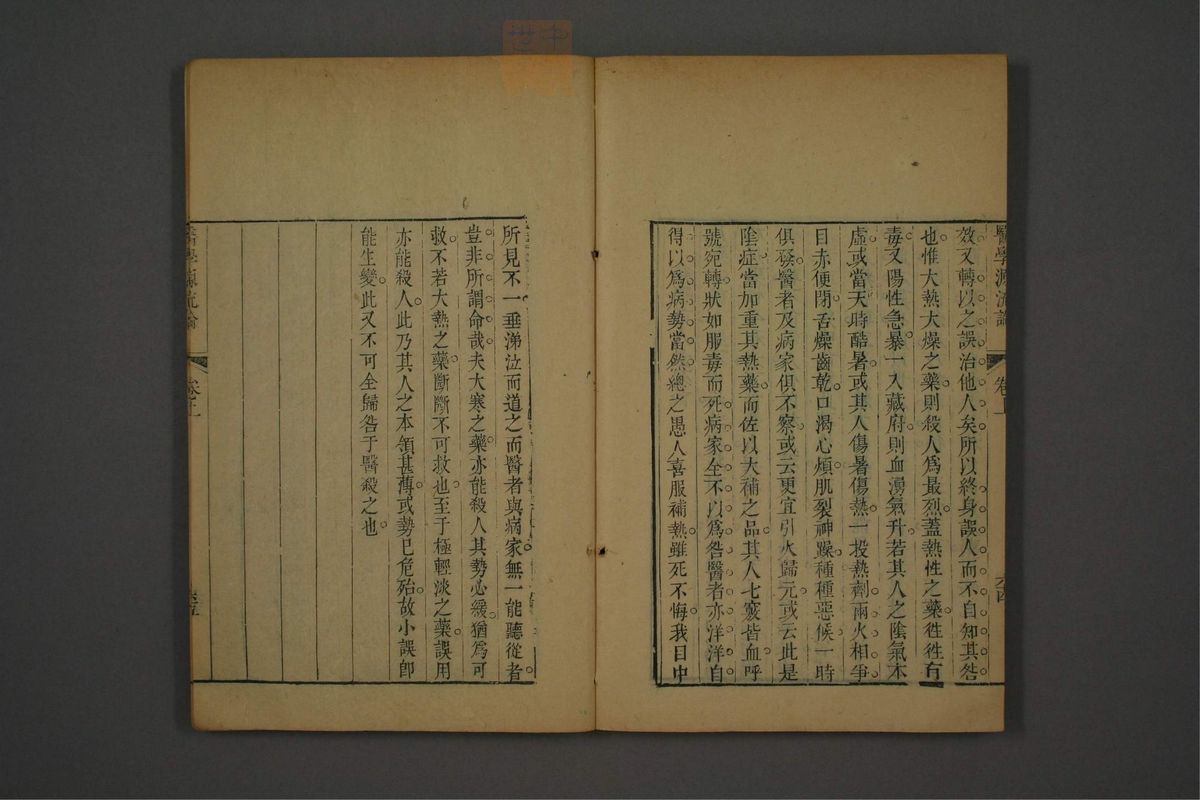 醫學源流論
卷上
六四
效又轉以之誤治他人矣所以終身誤人而不自知其咎
也惟大熱大燥之藥則殺人爲最烈蓋熱性之藥徃徃有
毒又陽性急暴一入藏府則血湧氣升若其人之陰氣本
虛或當天時酷暑或其人傷暑傷熱一投熱劑兩火相爭
目赤便閉舌燥齒乾口渴心煩肌裂神躁種種惡候一時
俱發醫者及病家俱不察或云更宜引火歸元或云此是
陰症當加重其熱藥而佐以大補之品其人七竅皆血呼
號宛轉狀如服毒而死病家全不以爲咎醫者亦洋洋自
得以爲病勢當然總之愚人喜服補熱雖死不悔我目中
所見不一垂涕泣而道之而醫者與病家無一能聽從者
豈非所謂命哉夫大寒之藥亦能殺人其勢必緩猶爲可
救不若大熱之藥斷斷不可救也至于極輕淡之藥誤用
亦能殺人此乃其人之本領甚薄或勢已危殆故小誤卽
能生變此又不可全歸咎于醫殺之也
醫學源流論
卷上